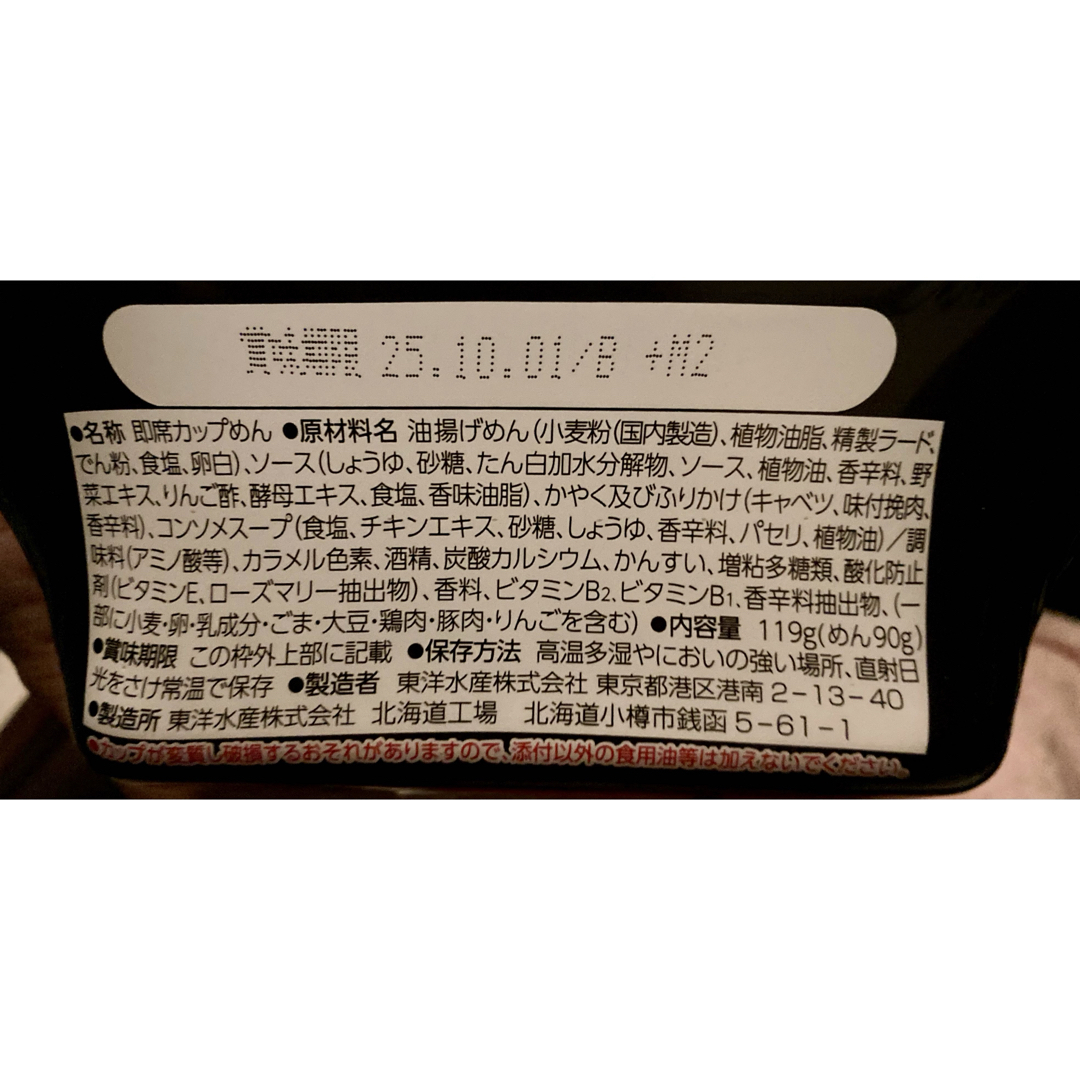 賞味期限 25.10.01/B +M2
●名称 即席カップめん ●原材料名 油揚げめん(小麦粉(国内製造)、植物油脂、精製ラード、
でん粉、食塩、卵白)、ソース(しょうゆ、砂糖、たん白加水分解物、ソース、植物油、香辛料、野
菜エキス、りんご酢、酵母エキス、食塩、香味油脂)、かやく及びふりかけ(キャベツ、味付挽肉、
香辛料)、コンソメスープ(食塩、チキンエキス、砂糖、しょうゆ、香辛料、パセリ、植物油)/調
味料(アミノ酸等)、カラメル色素、酒精、炭酸カルシウム、かんすい、増粘多糖類、酸化防止
剤(ビタミンE、ローズマリー抽出物)、香料、ビタミンB2、ビタミンB1、香辛料抽出物、(一
部に小麦・卵・乳成分・ごま・大豆・鶏肉・豚肉・りんごを含む) ●内容量 119g(めん90g)
●賞味期限 この枠外上部に記載 ●保存方法 高温多湿やにおいの強い場所、直射日
光をさけ常温で保存 ●製造者 東洋水産株式会社 東京都港区港南2-13-40
●製造所 東洋水産株式会社 北海道工場 北海道小樽市銭函5-61-1
●カップが変質し破損するおそれがありますので、添付以外の食用油等は加えないでください。